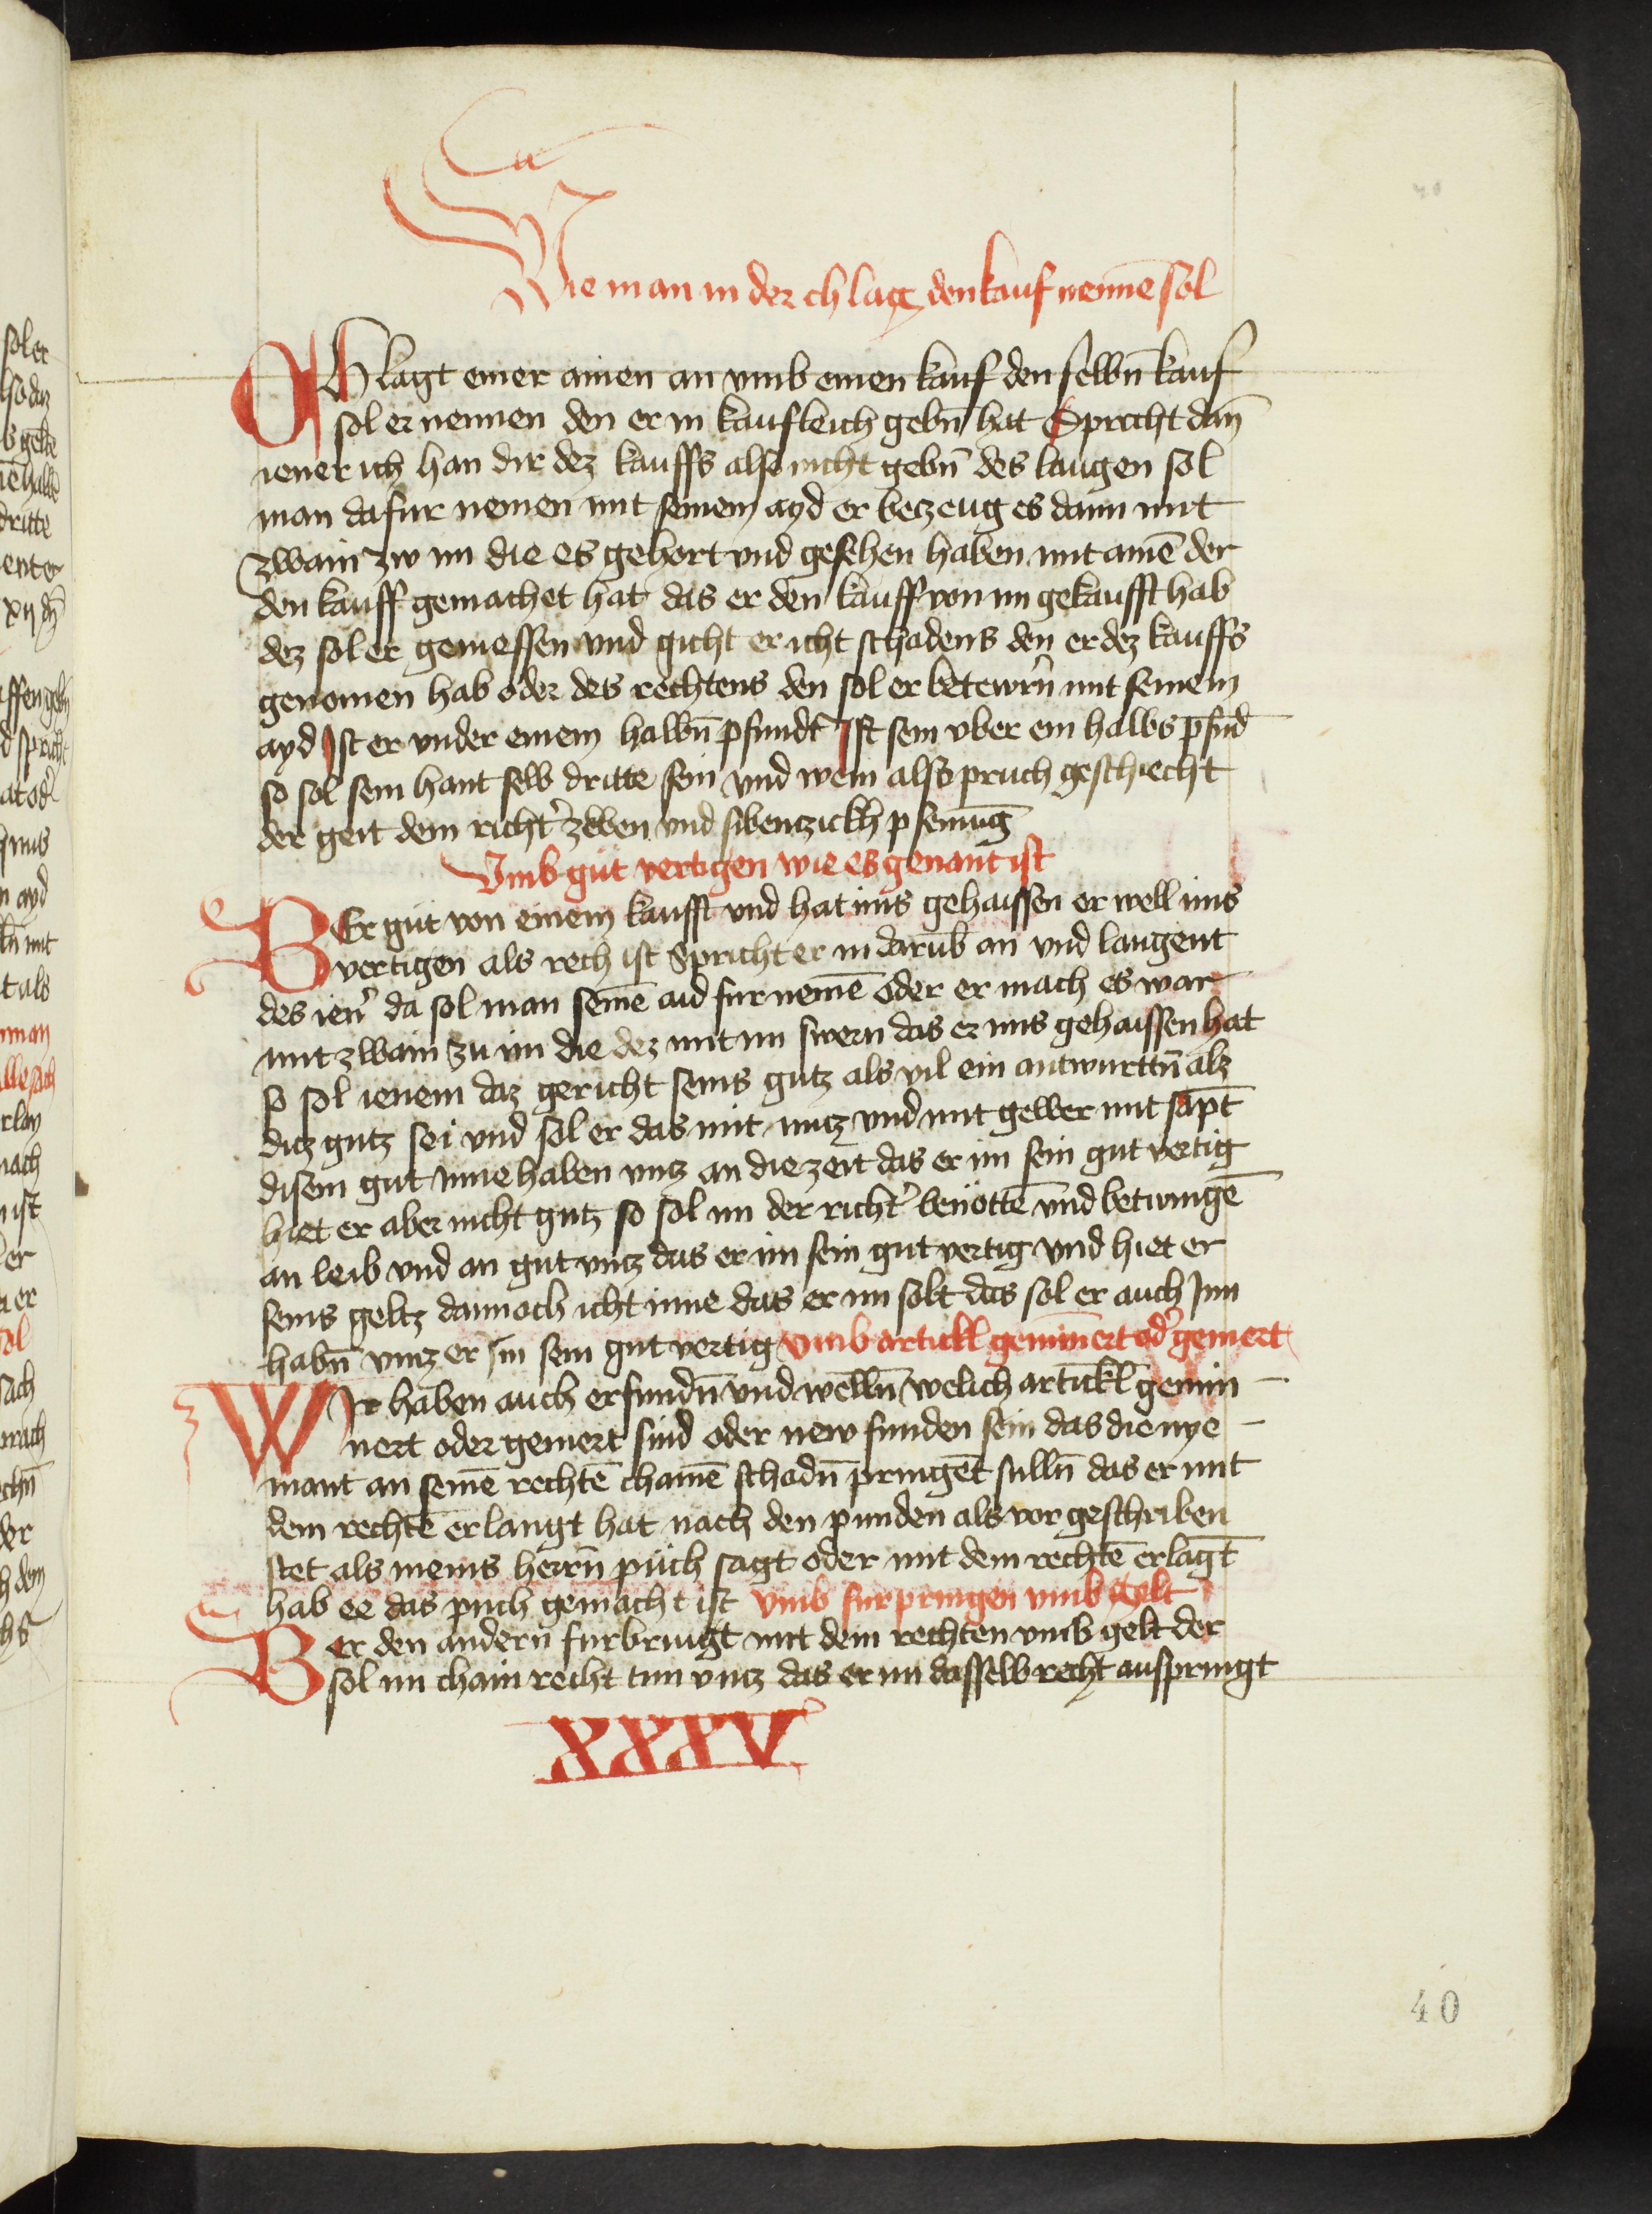 Wie man in der chlag den kauf nennē sol
CHlagt einer ainen an vmb einen kauf den selbn̄ kauf
sol er nennen den er in kaufleich gebn̄ hat Spricht dan̄
iener ich han dir dez kauffs also nicht gebn̄ des laugen sol
man dafur nemen mit seinem ayd er betzeug es dann mit
zwain zw im die es gehort vnd gesehen haben mit ainē der
den kauff gemachet hat das er den kauff von im gekaufft hab
dez sol er geniessen vnd gicht er icht schadens den er dez kauffs
genomen hab oder des rechtens den sol er betewrn̄ mit seinem
ayd Ist er vnder einem halbn̄ pfundt Ist sein vber ein halbs pfūd
so sol sein hant selb dritte sein vnd wem als pruch geschiecht
der geit dem richt̾ zwen vnd sibentzickh pfenn̄īg
Vmb gut vertigen wie es genant ist
WEr gut von einem kaufft vnd hat ims gehaissen er well ims
vertigen als rech ist Spricht er in darūb an vnd laugent
des ien̾ da sol man seinē aid fur nemē oder er mach es war
mit zwain zu im die dez mit im swern das er ims gehaissen hat
so sol ienem daz gericht seins gutz als vil ein antwurttn̄ alz
ditz gutz sei vnd sol er das mit nutz vnd mit gewer mit sāpt
disem gut inne haben vntz an die zeit das er im sein gut vertig
hiet er aber nicht gutz so sol im der richt̾ benöttē vnd betwingē
an leib vnd an gut vntz das er im sein gut vertig vnd hiet er
seins geltz dannoch icht inne das er im solt das sol er auch Inn
habn̄ vntz er im sein gut vertig vmb artickl geminnert od̾ gemert
WIr haben auch erfundn̄ vnd welln̄ welich artickl gemin
nert oder gemert sind oder new funden sein das die nye
mant an seinē rechtē chainē schadn̄ pringēt sulln̄ das er mit
dem rechtē erlangt hat nach den punden als vor geschriben
stet als meins herrn̄ puch sagt oder mit dem rechtē erlāgt
hab ee das puch gemacht ist vmb fur pringen vmb gelt
WEr den andern furbringt mit dem rechten vmb gelt der
sol im chain recht tun vntz das er im dasselb recht auspringt
XXXV
40